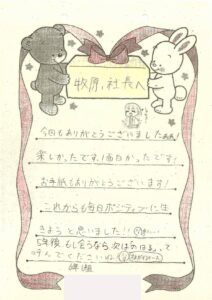 牧原,社長へ
今回もありがとうございました
楽しかったです!面白かったです!
お手紙もありがとうございます!
これからも毎日ポジティブに生
きようと思いました!!
5年後もし会うなら次は
呼んでくださいね